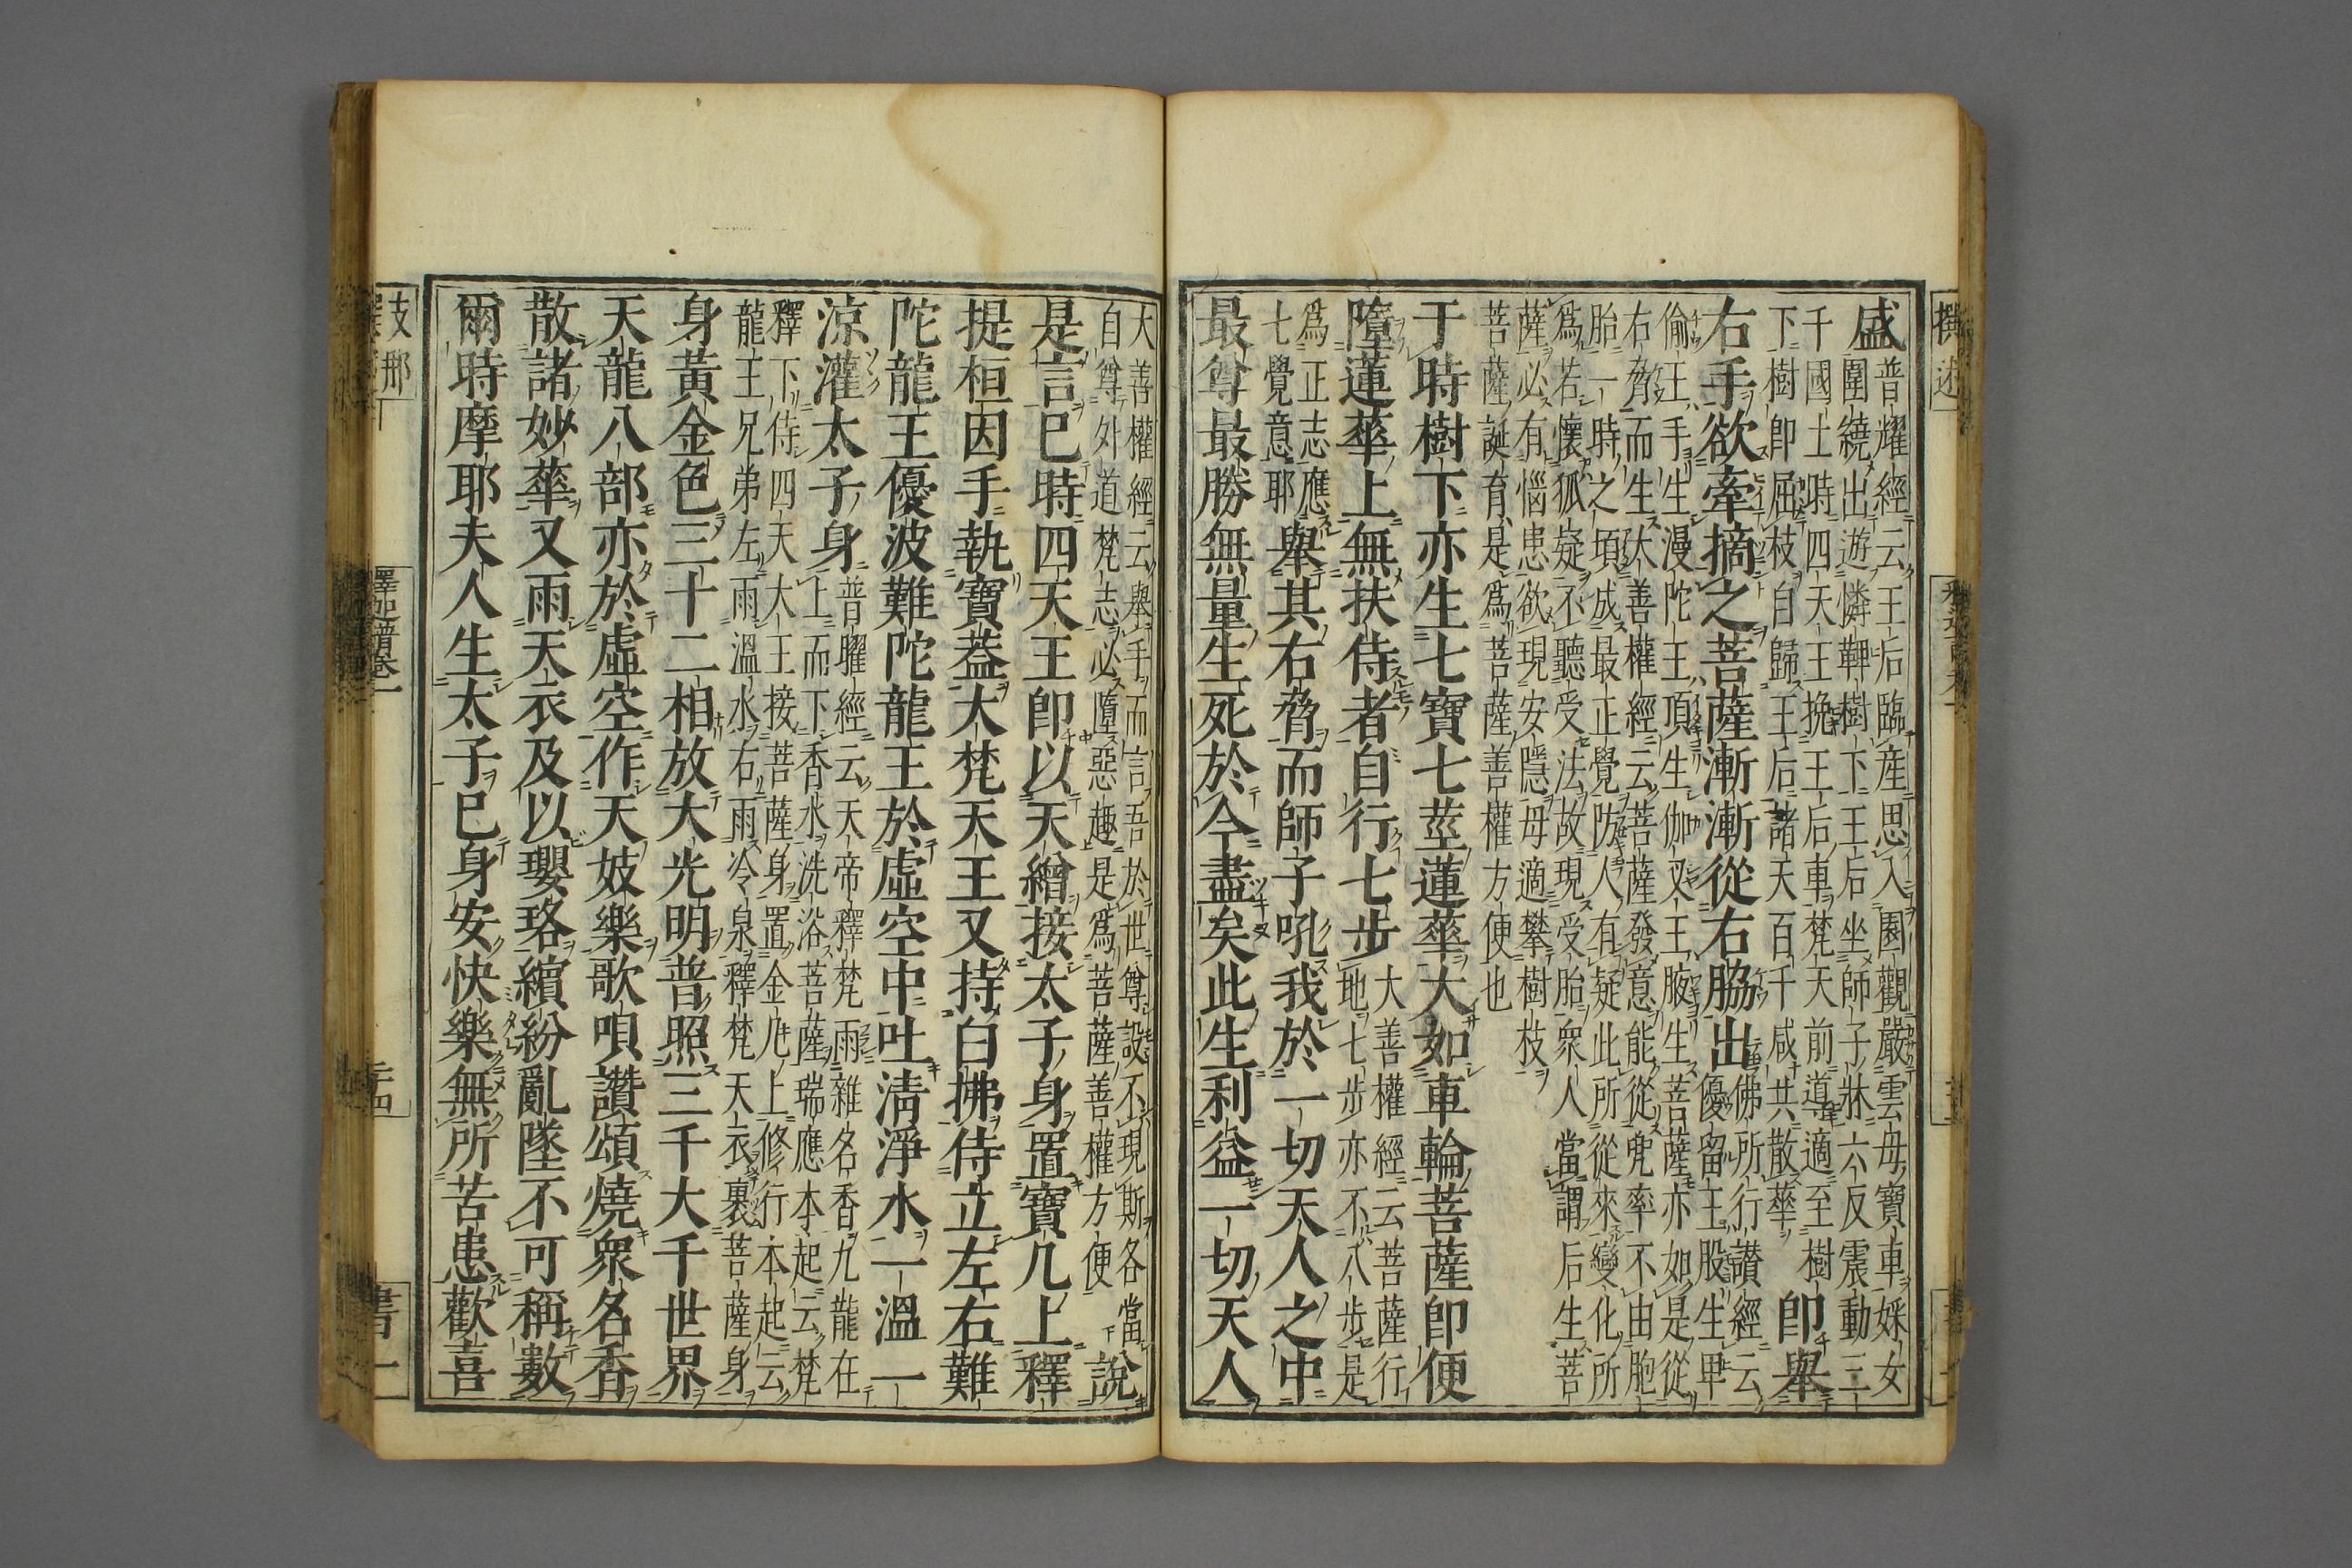 撰述
盛
普耀經云王后臨産思入園觀嚴雲母寶車婇女
圍繞出遊憐鞞樹下王后坐師子牀六反震動三
千國土時四天王挽王后車梵天前導適至樹
下樹即屈枝自歸王后諸天百千咸共散華
即舉
右手欲牽摘之菩薩漸漸從右脇出
佛所行讃經云
優留王股生畀
偷王手生漫陀王頂生伽叉王腋生菩薩亦如是從
右脅而生大善權經云菩薩發意能從兜率不由胞
胎一時之頃成最正覺防人有疑此所從來變化所
爲若懷狐疑不聽受法故現受胎衆人當謂后生菩
薩必有惱患欲現安隱毋適攀樹枝
菩薩誕育是爲菩薩善權方便也
于時樹下亦生七寶七莖蓮華大如車輪菩薩即便
墮蓮華上無扶侍者自行七步
大善權經云菩薩行
地七步亦不八步是
爲正志應
七覺意耶
舉其右脅而師子吼我於一切天人之中
最尊最勝無量生死於今盡矣此生利益一切天人
大善權經云舉手而言吾於世尊設不現斯各當
自尊外道梵志必墮惡趣是爲菩薩善權方便
說
是言已時四天王即以天繒接太子身置寶几上釋
提桓因手執寶蓋大梵天王又持白拂侍立左右難
陀龍王優波難陀龍王於虛空中吐清淨水一溫一
涼灌太子身
普曜經云天帝釋梵雨雜名香九龍在
上而下香水洗浴菩薩瑞應本起云梵
釋下侍四天大王接菩薩身置金几上修行本起云
龍王兄弟左雨溫水右雨冷泉釋梵天衣裹菩薩身
身黃金色三十二相放大光明普照三千大千世界
天龍八部亦於虛空作天妓樂歌唄讚頌燒衆名香
散諸妙華又雨天衣及以瓔珞繽紛亂墜不可稱數
爾時摩耶夫人生太子已身安快樂無所苦患歡喜
支那
釋迦譜卷一
二十四
書一